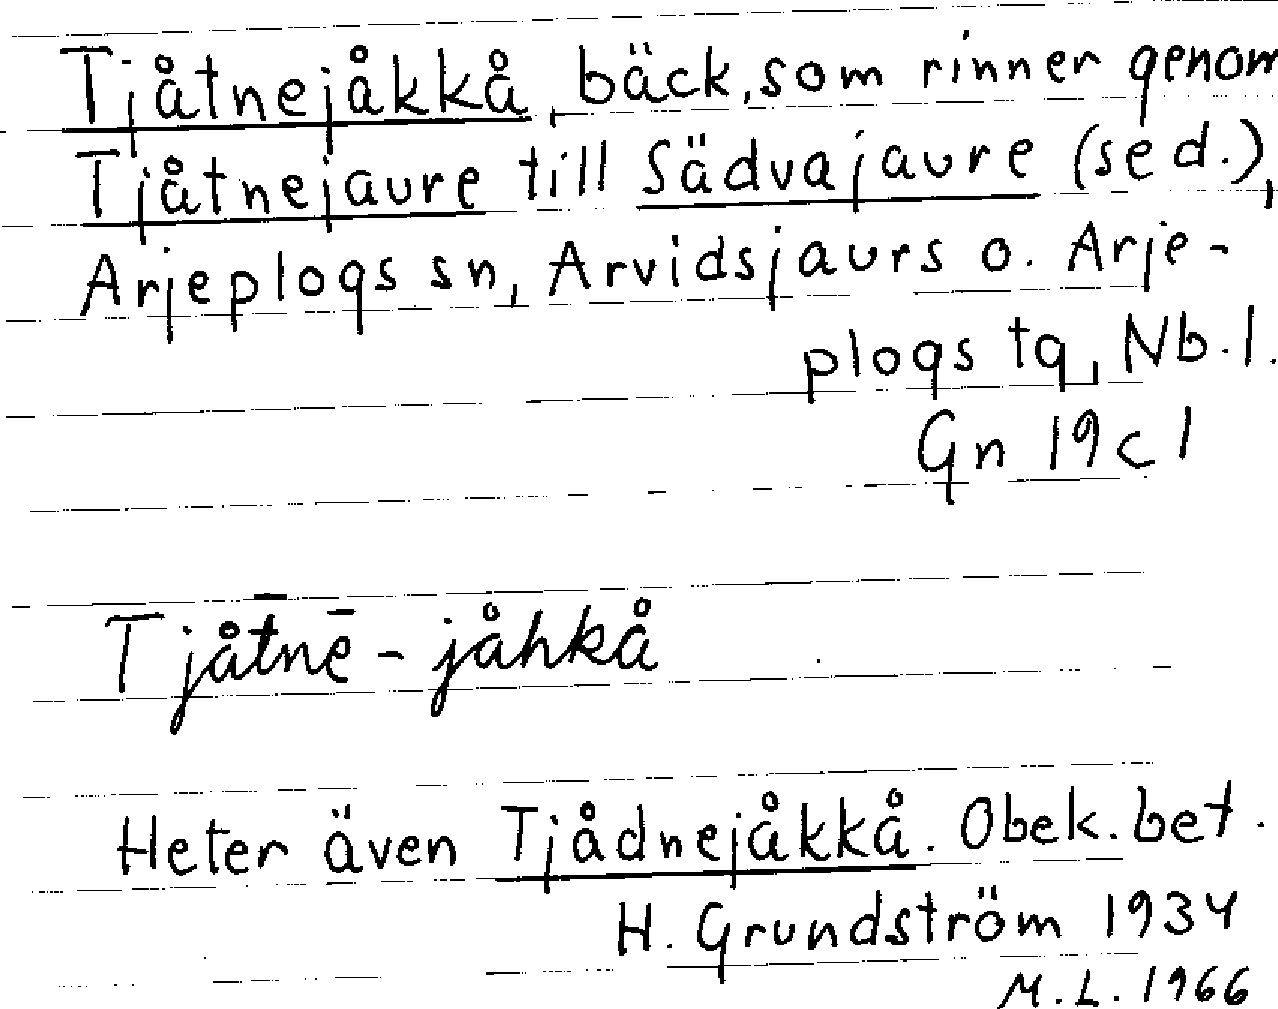 Tjåtnejåkkå, bäck, som rinner genom
Tjåtnejaure till Sädvajaure (sed.),
Arjeplogs sn, Arvidsjaurs o. Arje-
plogs tg, Nb. l.
Gn 19 c 1
Tjåt̄nē - jåhkå
Heter även Tjådnejåkkå. Obek. bet.
H. Grundström 1934
M.L. 1966